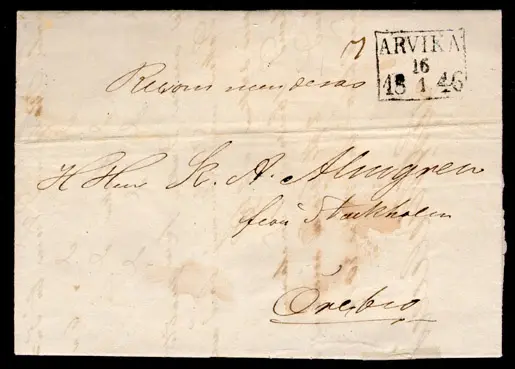 ARVIKA
16
18 1 46
7
Recommenderas
H Herr K. A. Almgren
från Stockholm
Örebro